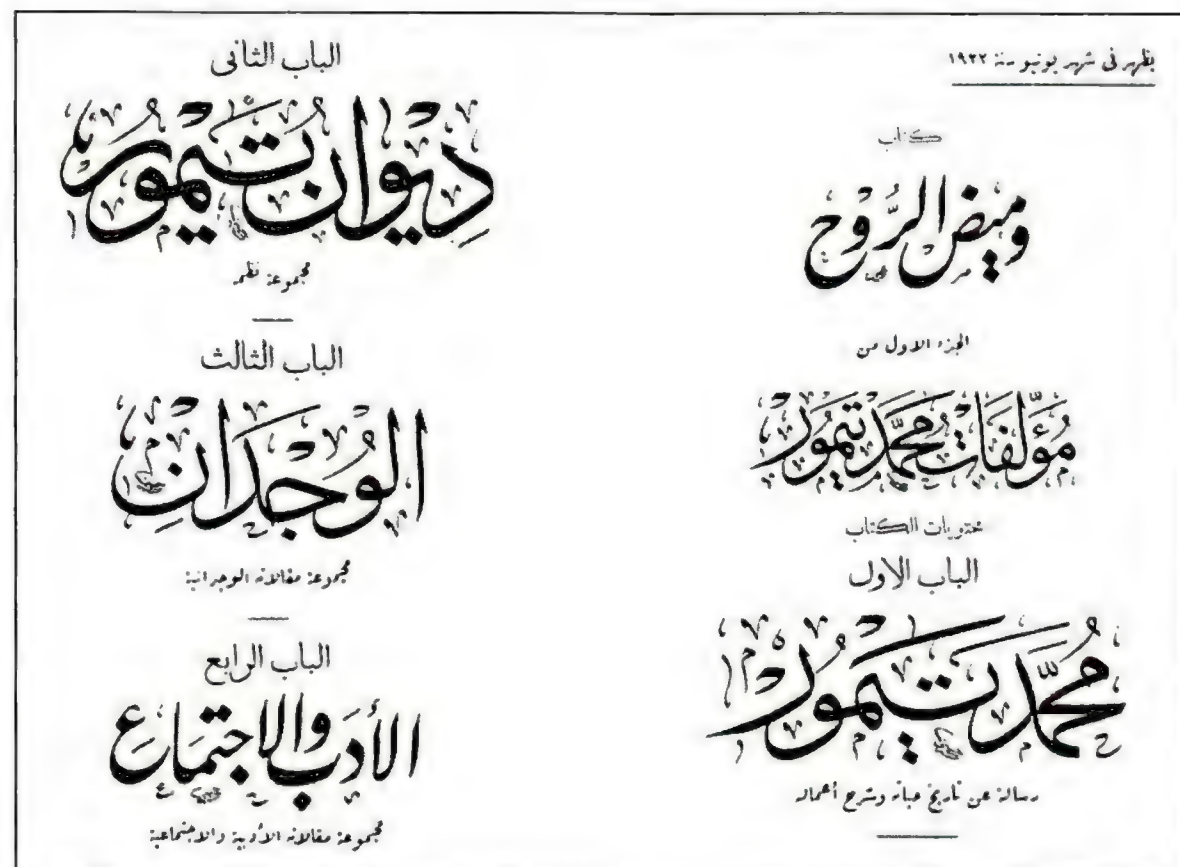 يظهر فى شهر يونيو سنة ١٩٢٢
كتاب
وميض الرُّوح
الجزء الاول من
مؤلَّفات محمَّد تيمور
محتويات الكتاب
الباب الاول
محمَّد تيمُور
رسالة عن تاريخ حياته وشرح أعماله
الباب الثانى
ديوان تيمُور
مجموعة نظمه
الباب الثالث
الوُجْدَانِ
مجموعة مقالاته الوجدانية
الباب الرابع
الأدَب والاجتمَاع
مجموعة مقالاته الأدبية والاجتماعية